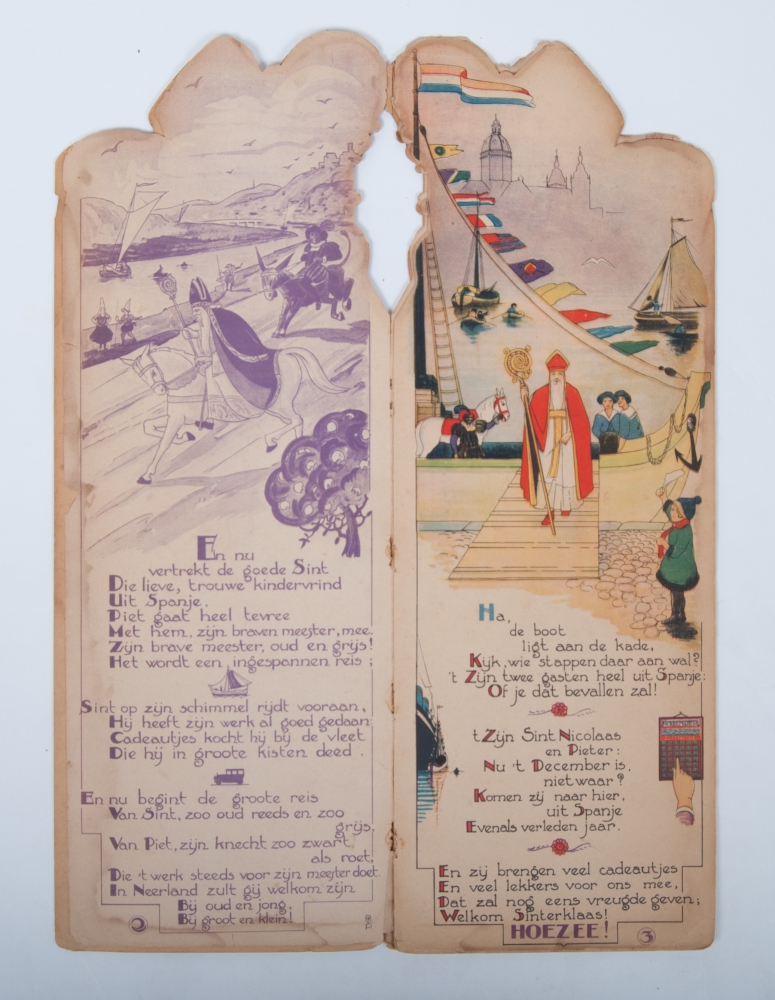 En nu
vertrekt de goede Sint
Die lieve, trouwe kindervrind
Uit Spanje.
Piet gaat heel tevree
Met hem, zijn braven meester, mee.
Zijn brave meester, oud en grijs!
Het wordt een ingespannen reis ;
Sint op zijn schimmel rijdt vooraan,
Hij heeft zijn werk al goed gedaan:
Cadeautjes kocht hij bij de vleet
Die hij in groote kisten deed .
En nu begint de groote reis
Van Sint, zoo oud reeds en zoo
grijs.
Van Piet, zijn knecht zoo zwart
als roet,
Die 't werk steeds voor zijn meester doet.
In Neerland zult gij welkom zijn
Bij oud en jong,
Bij groot en klein!
Ha,
de boot
ligt aan de kade,
Kijk, wie stappen daar aan wal?
't Zijn twee gasten heel uit Spanje:
Of je dat bevallen zal!
't Zijn Sint Nicolaas
en Pieter:
Nu 't December is,
niet waar?
Komen zij naar hier,
uit Spanje
Evenals verleden jaar.
En zij brengen veel cadeautjes
En veel lekkers voor ons mee,
Dat zal nog eens vreugde geven;
Welkom Sinterklaas!
HOEZEE!
3